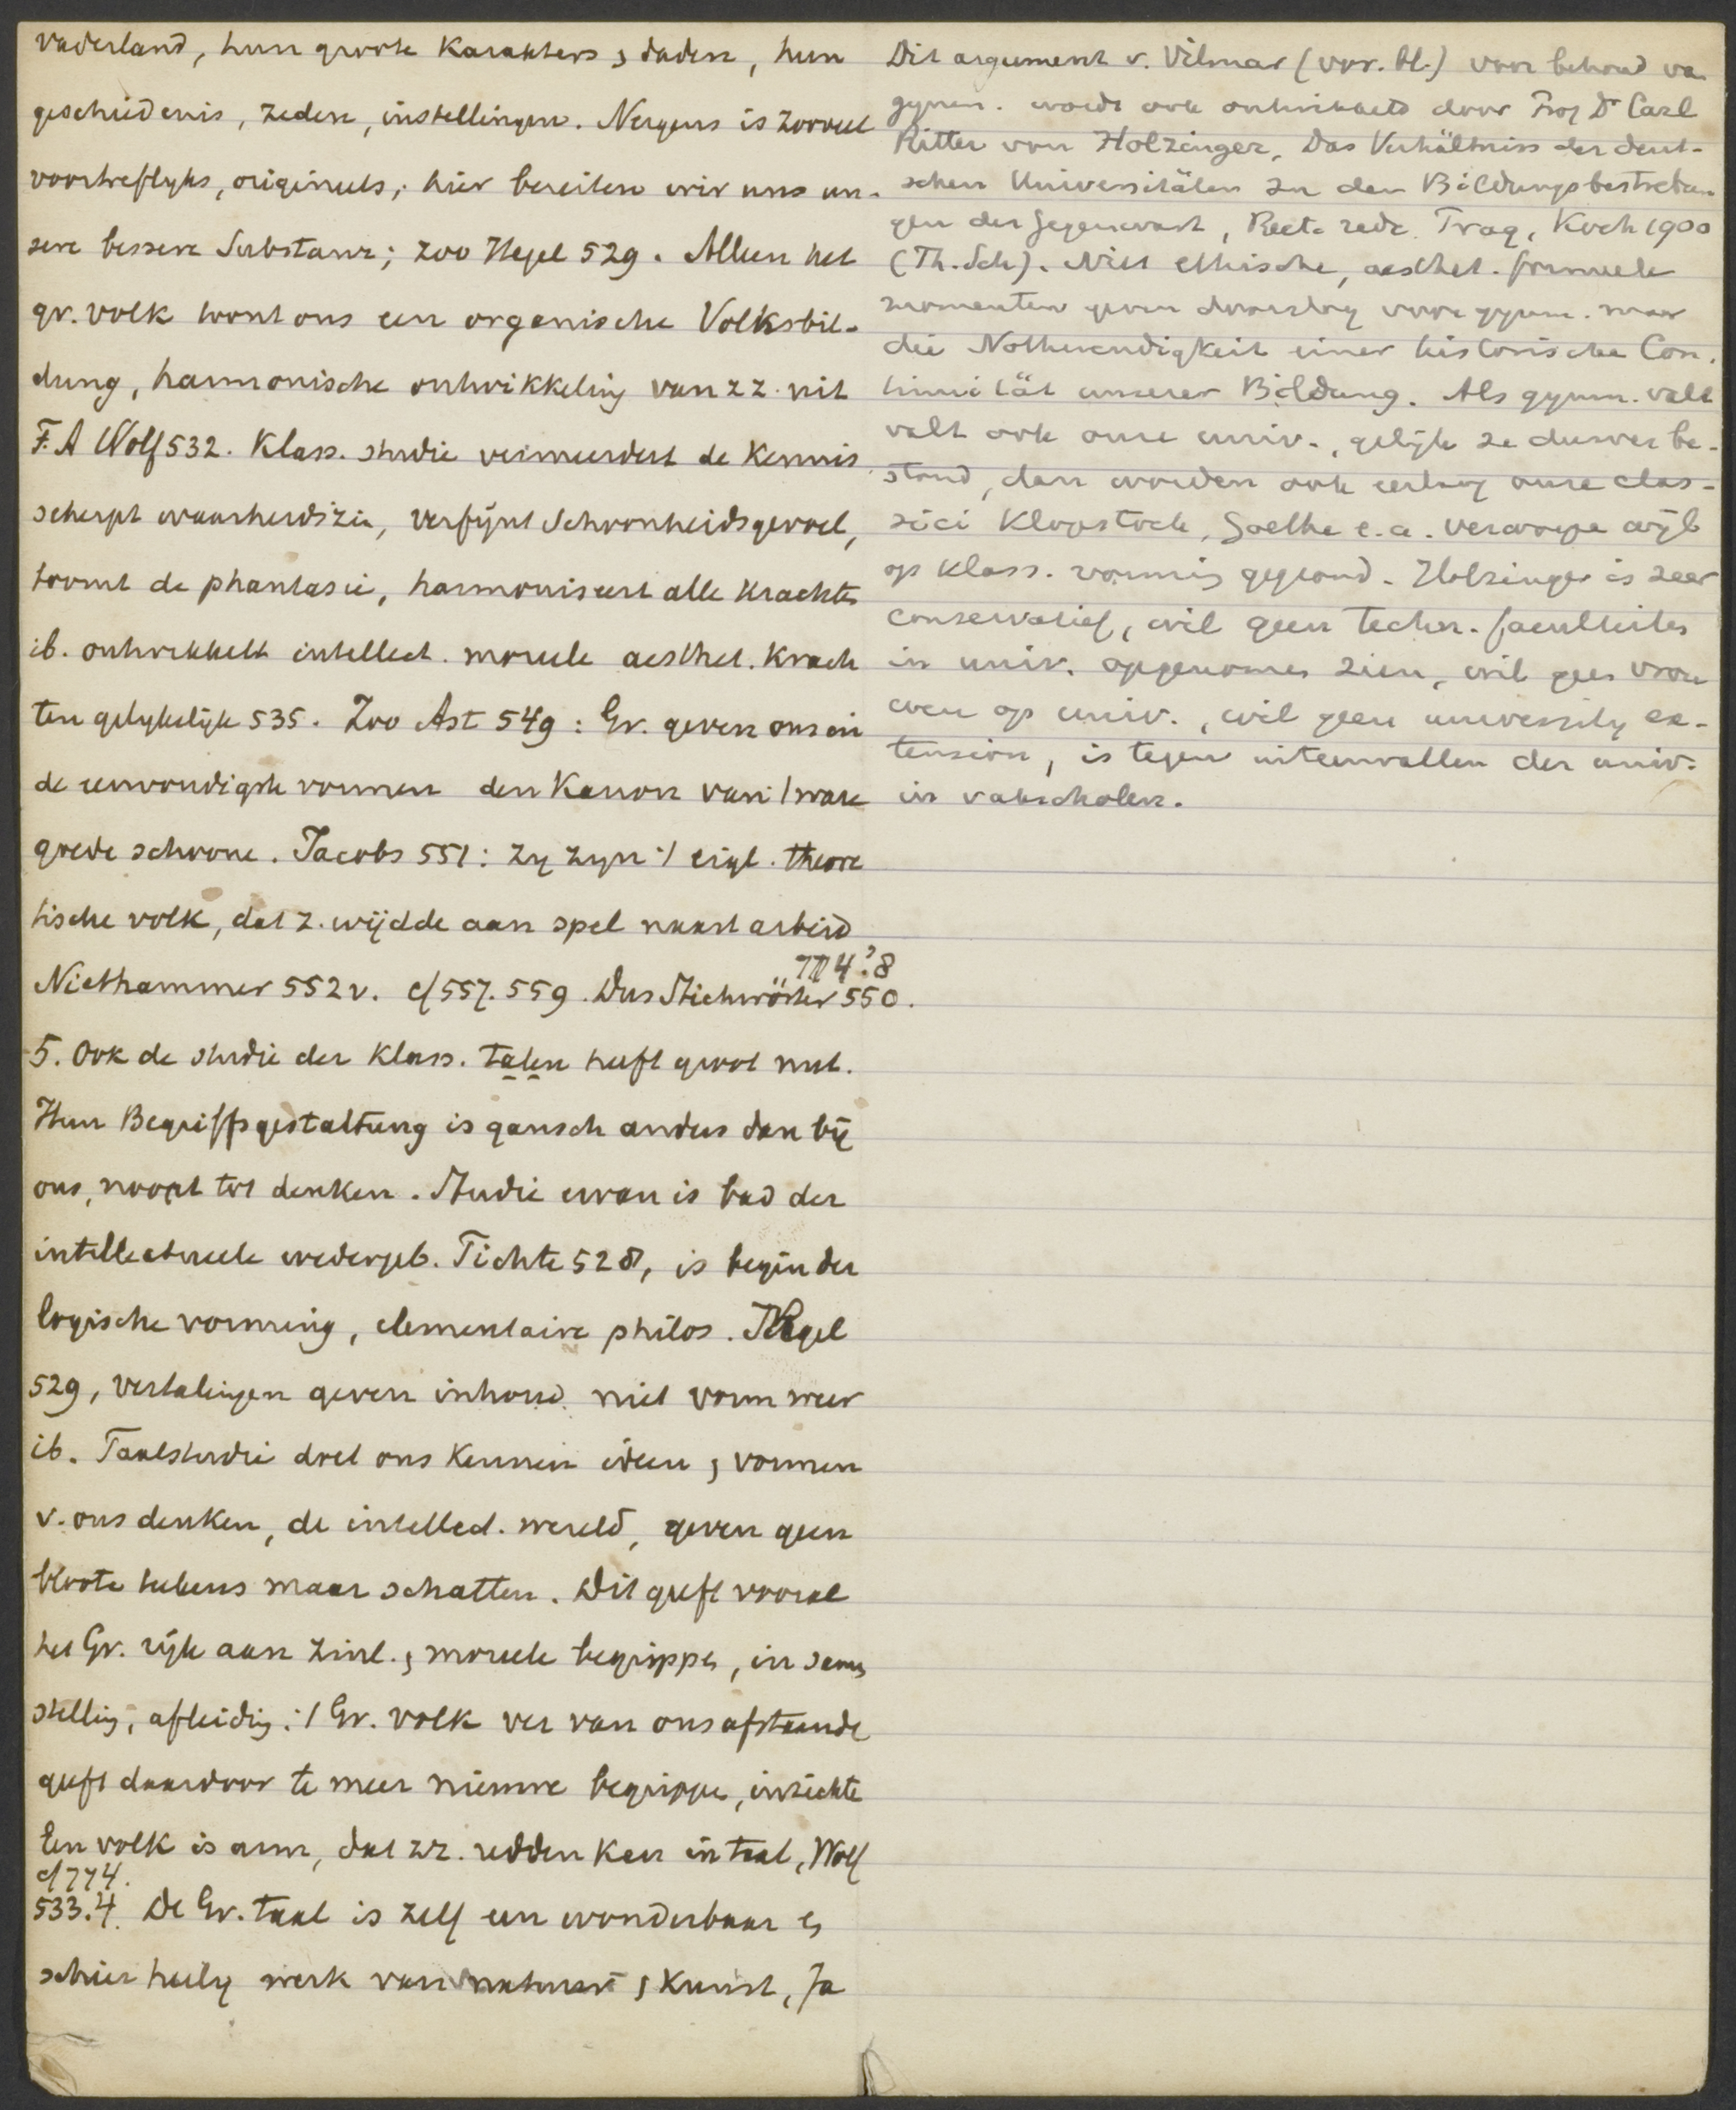 vaderland, hun groote karakters, daden, hun
geschiedenis, zeden, instellingen. Nergens is zooveel
voortreflyks, origineels; hier bereiten wir uns un-
sere bessere Substanz; zoo Hegel 529. Alleen het
gr. volk toont ons een organische Volksbil-
dung, harmonische ontwikkeling van zz. uit
F. A Wolf 532. Klass. studie vermeerdert de kennis
scherpt waarheidszin, verfijnt Schoonheidsgevoel,
toomt de phantasie, harmoniseert alle krachten
ib. ontwikkelt intellect. moreele aesthet. krach
ten gelykelijk 535. Zoo Ast 549: Gr. geven ons in
de eenvoudigste vormen den Kanon van :/ ware
goede schoone. Jacobs 551: zy zyn :/ eigl. theore
tische volk, dat z. wijdde aan spel naast arbeid
774.8
Niethammer 552v. cf 557. 559. Das Stichwörter 550.
5. Ook de studie der klass. talen heeft groot nut.
Hun Begriffsgestaltung is gansch anders dan bij
ons, noopt tot denken. Studie ervan is bad der
intellectueele wedergeb. Fichte 528, is begin der
logische vorming, elementaire philos. Hegel
529, vertalingen geven inhoud niet vorm weer
ib. Taalstudie doet ons kennen ideen, vormen
v. ons denken, de intellect. wereld, geven geen
bloote tekens maar schatten. Dit geeft vooral
het Gr. rijk aan zinl., moreele begrippen, in samen
stelling, afleiding. :/ Gr. volk ver van ons afstaande
geeft daardoor te meer nieuwe begrippen, inzichten
Een volk is arm, dat zz. redden kan in taal, Wolf
cf 774.
533.4. De Gr. taal is zelf een wonderbaar en
schier heilig werk van natuur, kunst, Ja
Dit argument v. Vilmar (vor. bl.) voor behoud van
gymn. wordt ook ontwikkeld door Prof Dr Carl
Ritter von Holzinger, Das Verhältniss der deut-
schen Universitäten zu den Bildungsbestrebun
gen der Gegenwart, Rect. rede. Praag, Koch 1900
(Th. Sch). Niet ethische, aesthet. formeele
momenten geven doorslag voor gymn. maar
die Nothwendigkeit einer historische Con-
tinuität unserer Bildung. Als gymn. valt
valt ook onze univ., gelijk ze dusver be-
stond, dan worden ook eerlang onze clas-
sici Klopstock, Goethe e.a. verworpen wijl
op klass. vorming gegrond. Holzinger is zeer
conservatief, wil geen techn. faculteiten
in univ. opgenomen zien, wil geen vrou
wen op univ., wil geen university ex-
tension, is tegen uiteenvallen der univ.
in vakscholen.